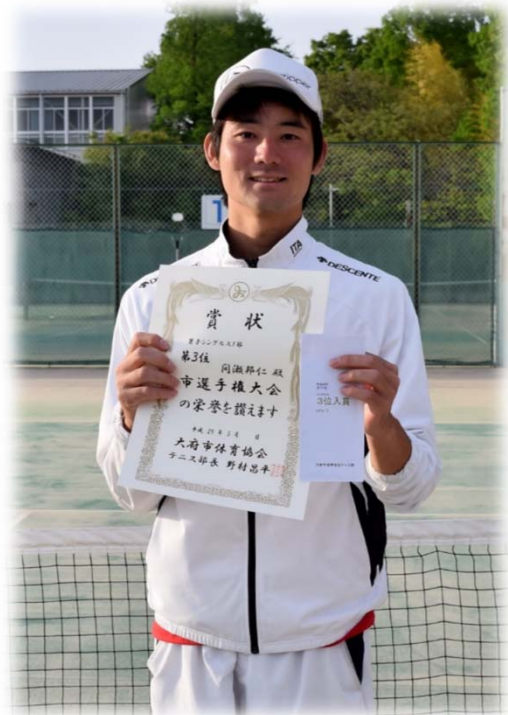 DESCENTE
ITA
1
賞状
男子シングルス1部
第3位
邦仁 殿
市選手権大会
の栄誉を讃えます
平成26年5月 日
大府市体育協会
テニス部長 野村昌平
3位入賞